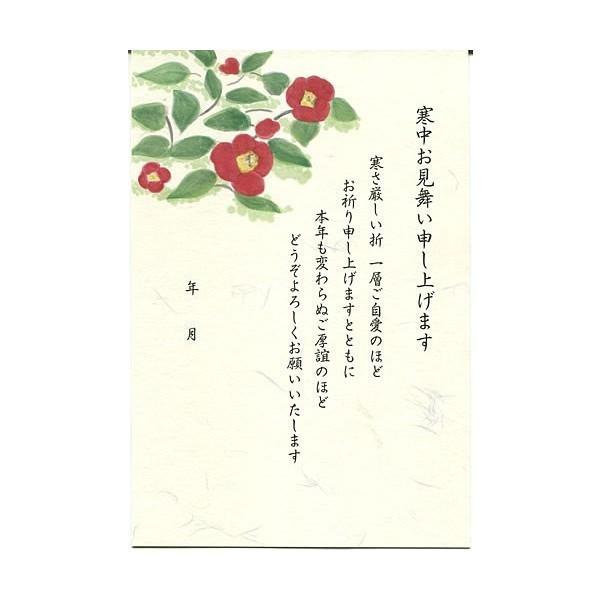 寒中お見舞い申し上げます
寒さ厳しい折 一層ご自愛のほど
お祈り申し上げますとともに
本年も変わらぬご厚誼のほど
どうぞよろしくお願いいたします
年 月